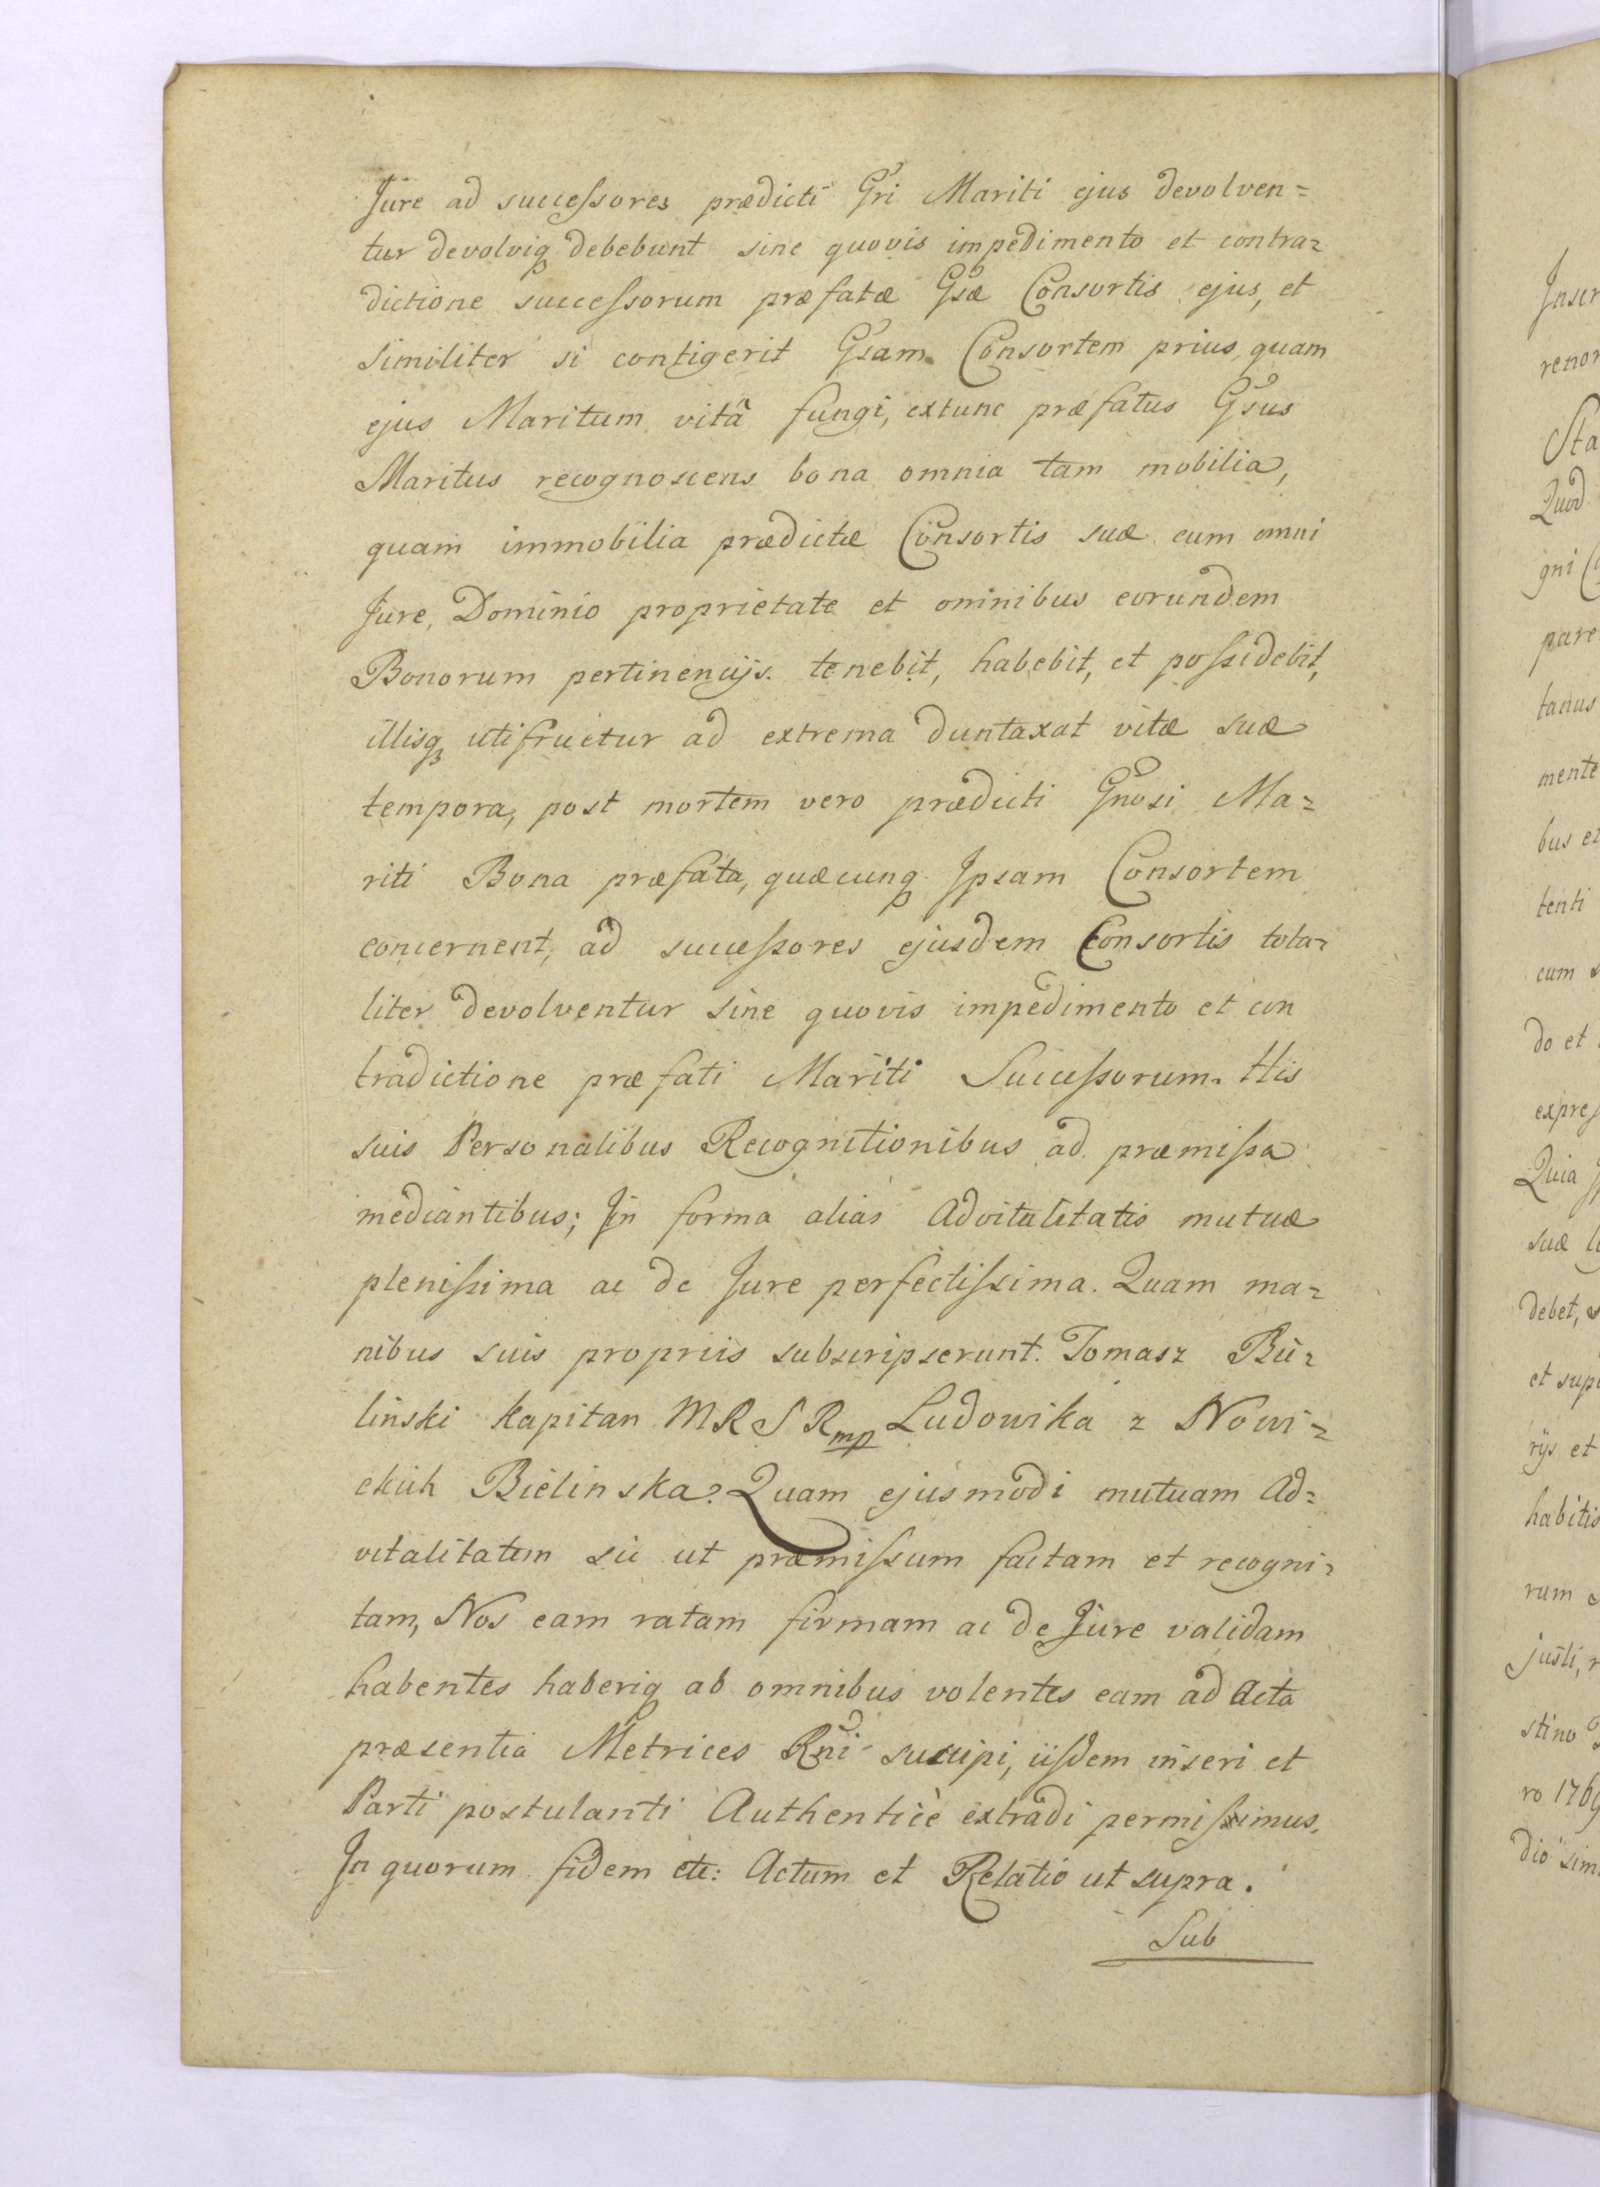 Jure ad successores prædicti Gri Mariti ejus devolven=
tur devolviq debebunt sine quovis impedimento et contra=
dictione successorum præfatæ Gsæ Consortis ejus, et
similiter si contigerit Gsam Consortem prius, quam
ejus Maritum vitâ fungi, extunc præfatus Gsus
Maritus recognoscens bona omnia tam mobilia,
quam immobilia prædictæ Consortis suæ cum omni
Jure, Dominio proprietate et omnibus eorundem
Bonorum pertinencijs tenebit, habebit, et possidebit,
illisq utifructur ad extrema duntaxat vitæ suæ
tempora, post mortem vero prædicti Gnosi Ma=
riti Bona præfata, quæcunq Ipsam Consortem
concernent, ad successores ejusdem Consortis tota=
liter devolventur sine quovis impedimento et con
tradictione præfati Mariti Successorum. His
suis Personalibus Recognitionibus ad præmissa
mediantibus; In forma alias Advitalitatis mutuæ
plenissima ac de Jure perfectissima. Quam ma=
nibus suis propriis subscripserunt. Tomasz Bie=
linski kapitan MRSR mp Ludowika z Nowi=
ckich Bielinska. Quam ejusmodi mutuam Ad=
vitalitatem sic ut præmissum factam et recogni=
tam, Nos eam ratam firmam ac de Jure validam
habentes haberiq ab omnibus volentes eam ad Acta
præsentia Metrices Rni suscipi, iisdem inseri et
Parti postulanti Authenticè extradi permissimus.
In quorum fidem etc: Actum et Relatio ut supra.
Sub
Inser
renor
Sta
Quod
gni
pare
tanus
mente
bus et
tenti
cum
do et
expres
Quia
suæ
debet,
et sup
rijs et
habitis
rum
justi,
stino
ro 1769
dio sim